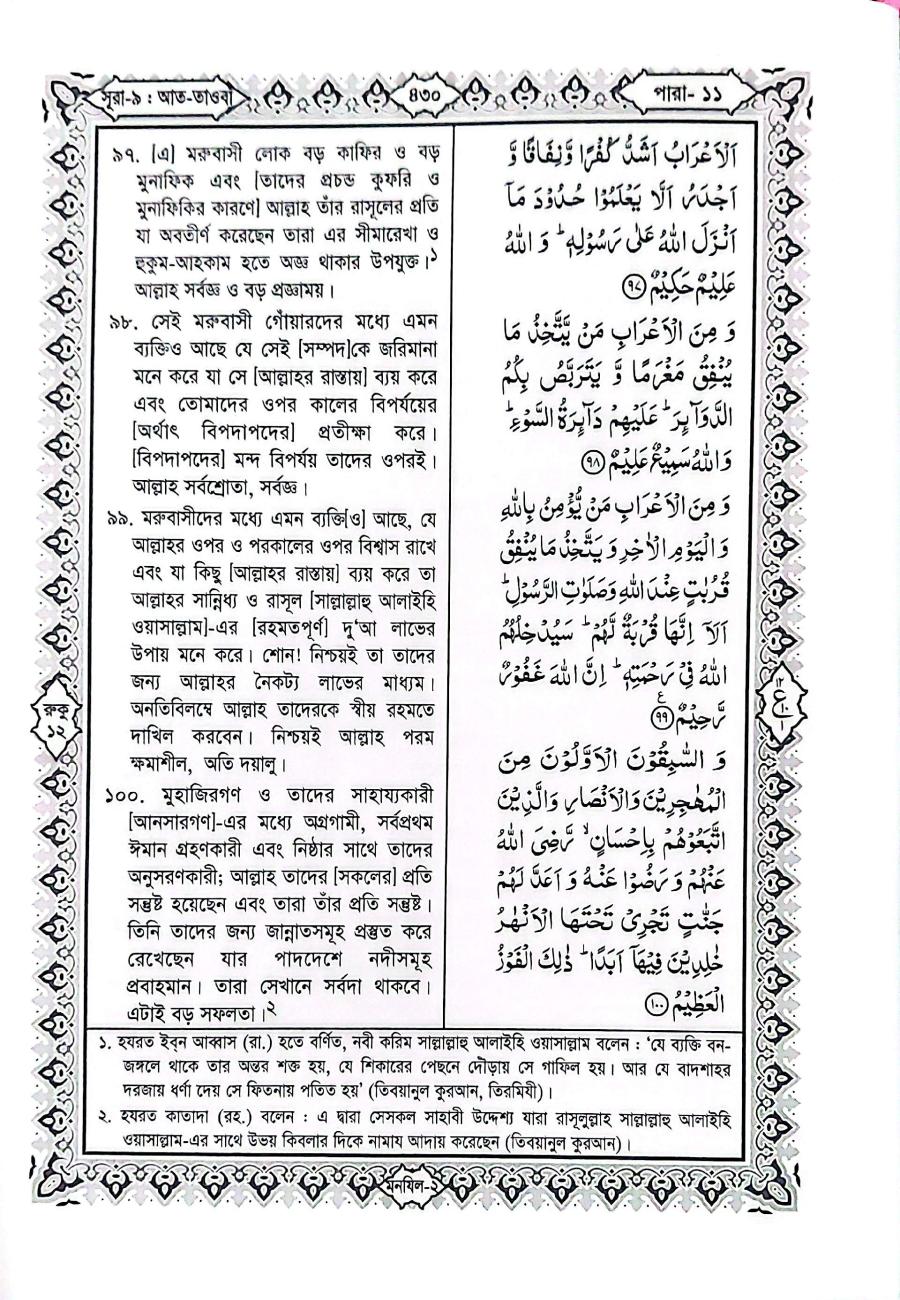 সূরা-৯ : আত-তাওবা
৪৩০
পারা- ১১
৯৭. [এ] মরুবাসী লোক বড় কাফির ও বড়
মুনাফিক এবং [তাদের প্রচন্ড কুফরি ও
মুনাফিকির কারণে] আল্লাহ তাঁর রাসূলের প্রতি
যা অবতীর্ণ করেছেন তারা এর সীমারেখা ও
হুকুম-আহকাম হতে অজ্ঞ থাকার উপযুক্ত।১
আল্লাহ সর্বজ্ঞ ও বড় প্রজ্ঞাময়।
৯৮. সেই মরুবাসী গোঁয়ারদের মধ্যে এমন
ব্যক্তিও আছে যে সেই [সম্পদ]কে জরিমানা
মনে করে যা সে [আল্লাহর রাস্তায়] ব্যয় করে
এবং তোমাদের ওপর কালের বিপর্যয়ের
[অর্থাৎ বিপদাপদের] প্রতীক্ষা করে।
[বিপদাপদের] মন্দ বিপর্যয় তাদের ওপরই।
আল্লাহ সর্বশ্রোতা, সর্বজ্ঞ।
৯৯. মরুবাসীদের মধ্যে এমন ব্যক্তি[ও] আছে, যে
আল্লাহর ওপর ও পরকালের ওপর বিশ্বাস রাখে
এবং যা কিছু [আল্লাহর রাস্তায়] ব্যয় করে তা
আল্লাহর সান্নিধ্য ও রাসূল [সাল্লাল্লাহু আলাইহি
ওয়াসাল্লাম]-এর [রহমতপূর্ণ] দু‘আ লাভের
উপায় মনে করে। শোন! নিশ্চয়ই তা তাদের
জন্য আল্লাহর নৈকট্য লাভের মাধ্যম।
অনতিবিলম্বে আল্লাহ তাদেরকে স্বীয় রহমতে
দাখিল করবেন। নিশ্চয়ই আল্লাহ পরম
ক্ষমাশীল, অতি দয়ালু।
১০০. মুহাজিরগণ ও তাদের সাহায্যকারী
[আনসারগণ]-এর মধ্যে অগ্রগামী, সর্বপ্রথম
ঈমান গ্রহণকারী এবং নিষ্ঠার সাথে তাদের
অনুসরণকারী; আল্লাহ তাদের [সকলের] প্রতি
সন্তুষ্ট হয়েছেন এবং তারা তাঁর প্রতি সন্তুষ্ট।
তিনি তাদের জন্য জান্নাতসমূহ প্রস্তুত করে
রেখেছেন যার পাদদেশে নদীসমূহ
প্রবাহমান। তারা সেখানে সর্বদা থাকবে।
এটাই বড় সফলতা।২
اَلْاَعْرَابُ اَشَدُّ كُفْرًا وَّنِفَاقًا وَّ
اَجْدَرُ اَلَّا يَعْلَمُوْا حُدُوْدَ مَاۤ
اَنْزَلَ اللّٰهُ عَلٰى رَسُوْلِهٖ ؕ وَ اللّٰهُ
عَلِيْمٌ حَكِيْمٌ ۝۹۷
وَ مِنَ الْاَعْرَابِ مَنْ يَّتَّخِذُ مَا
يُنْفِقُ مَغْرَمًا وَّ يَتَرَبَّصُ بِكُمُ
الدَّوَآىِٕرَ ؕ عَلَيْهِمْ دَآىِٕرَةُ السَّوْءِ ؕ
وَاللّٰهُ سَمِيْعٌ عَلِيْمٌ ۝۹۸
وَ مِنَ الْاَعْرَابِ مَنْ يُّؤْمِنُ بِاللّٰهِ
وَ الْيَوْمِ الْاٰخِرِ وَ يَتَّخِذُ مَا يُنْفِقُ
قُرُبٰتٍ عِنْدَ اللّٰهِ وَصَلَوٰتِ الرَّسُوْلِ ؕ
اَلَاۤ اِنَّهَا قُرْبَةٌ لَّهُمْ ؕ سَيُدْخِلُهُمُ
اللّٰهُ فِيْ رَحْمَتِهٖ ؕ اِنَّ اللّٰهَ غَفُوْرٌ
رَّحِيْمٌ ۝۹۹ ع
وَ السّٰبِقُوْنَ الْاَوَّلُوْنَ مِنَ
الْمُهٰجِرِيْنَ وَالْاَنْصَارِ وَالَّذِيْنَ
اتَّبَعُوْهُمْ بِاِحْسَانٍ ۙ رَّضِيَ اللّٰهُ
عَنْهُمْ وَ رَضُوْا عَنْهُ وَ اَعَدَّ لَهُمْ
جَنّٰتٍ تَجْرِيْ تَحْتَهَا الْاَنْهٰرُ
خٰلِدِيْنَ فِيْهَاۤ اَبَدًا ؕ ذٰلِكَ الْفَوْزُ
الْعَظِيْمُ ۝۱۰۰
রুকূ
১২
১. হযরত ইব্‌ন আব্বাস (রা.) হতে বর্ণিত, নবী করিম সাল্লাল্লাহু আলাইহি ওয়াসাল্লাম বলেন : ‘যে ব্যক্তি বন-
জঙ্গলে থাকে তার অন্তর শক্ত হয়, যে শিকারের পেছনে দৌড়ায় সে গাফিল হয়। আর যে বাদশাহর
দরজায় ধর্ণা দেয় সে ফিতনায় পতিত হয়’ (তিবয়ানুল কুরআন, তিরমিযী)।
২. হযরত কাতাদা (রহ.) বলেন : এ দ্বারা সেসকল সাহাবী উদ্দেশ্য যারা রাসূলুল্লাহ সাল্লাল্লাহু আলাইহি
ওয়াসাল্লাম-এর সাথে উভয় কিবলার দিকে নামায আদায় করেছেন (তিবয়ানুল কুরআন)।
মনযিল-২